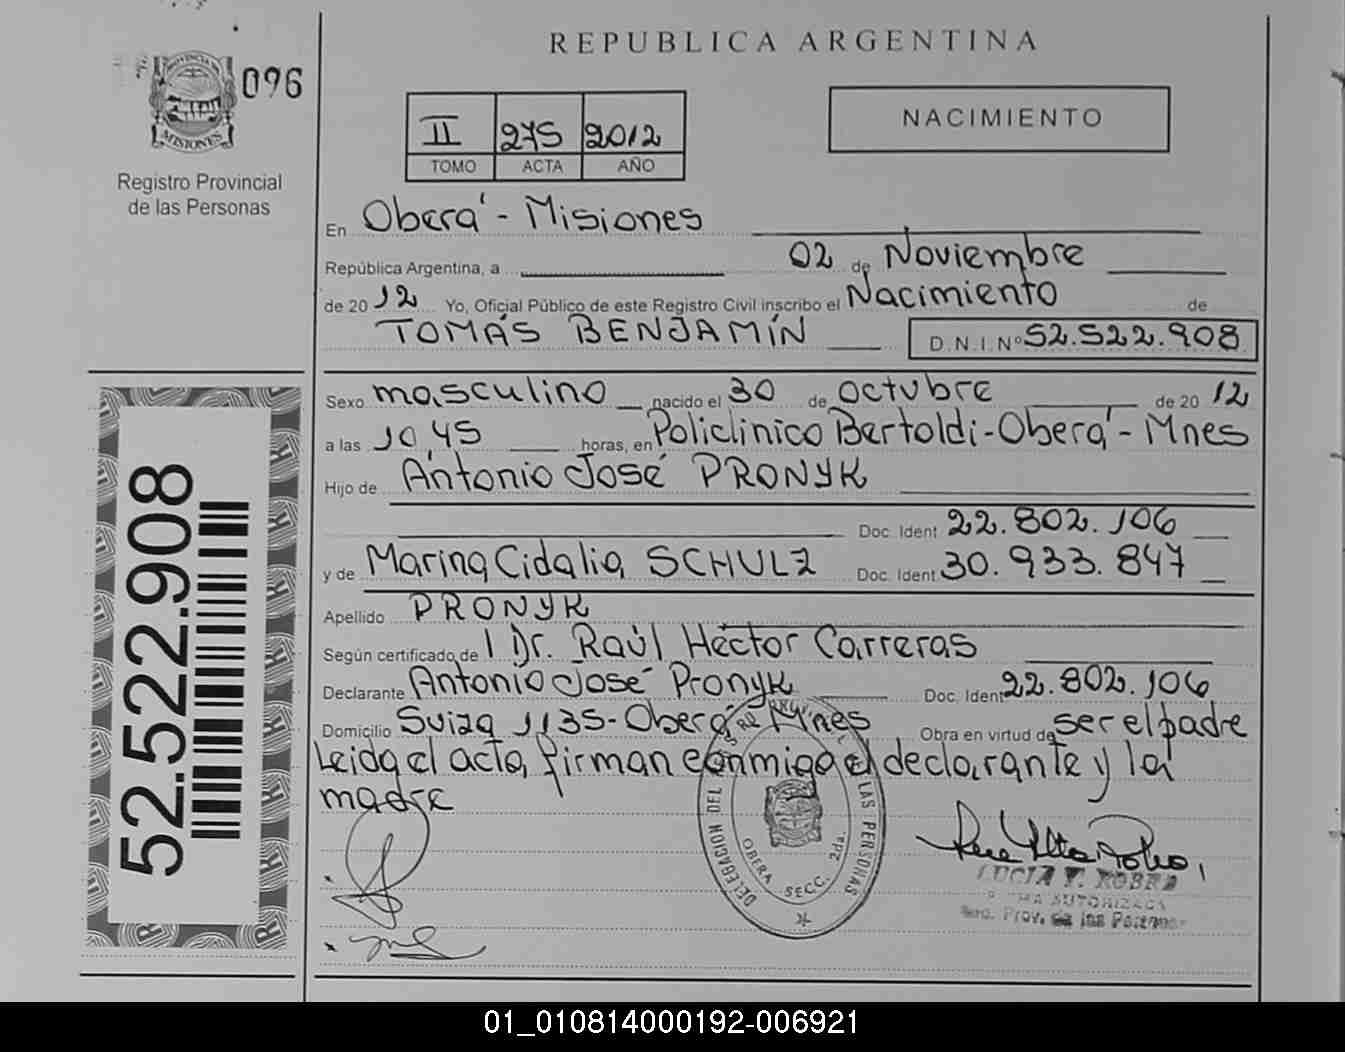 REPUBLICA ARGENTINA
096
PROVINCIA DE MISIONES
Registro Provincial
de las Personas
II 275 2012
TOMO ACTA AÑO
NACIMIENTO
En Oberá - Misiones
República Argentina, a 02 de Noviembre
de 2012 Yo, Oficial Público de este Registro Civil inscribo el Nacimiento de
TOMÁS BENJAMÍN D.N.I. Nº 52.522.908
Sexo masculino nacido el 30 de octubre de 2012
a las 10,45 horas, en Policlinico Bertoldi - Oberá - Mnes
Hijo de Antonio José PRONYK
Doc. Ident. 22.802.106
y de Marina Cidalia SCHULZ Doc. Ident. 30.933.847
Apellido PRONYK
Según certificado de l Dr. Raúl Héctor Carreras
Declarante Antonio José Pronyk Doc. Ident. 22.802.106
Domicilio Suiza 1135 - Oberá Mnes Obra en virtud de ser el padre
Leida el acta, firman conmigo el declarante y la
madre
DELEGACION DEL REGISTRO PROVINCIAL DE LAS PERSONAS
OBERA SECC. 2da.
LUCIA Y. ROBER
AUTORIZADA
Reg. Prov. de las Personas
52.522.908
01_010814000192-006921